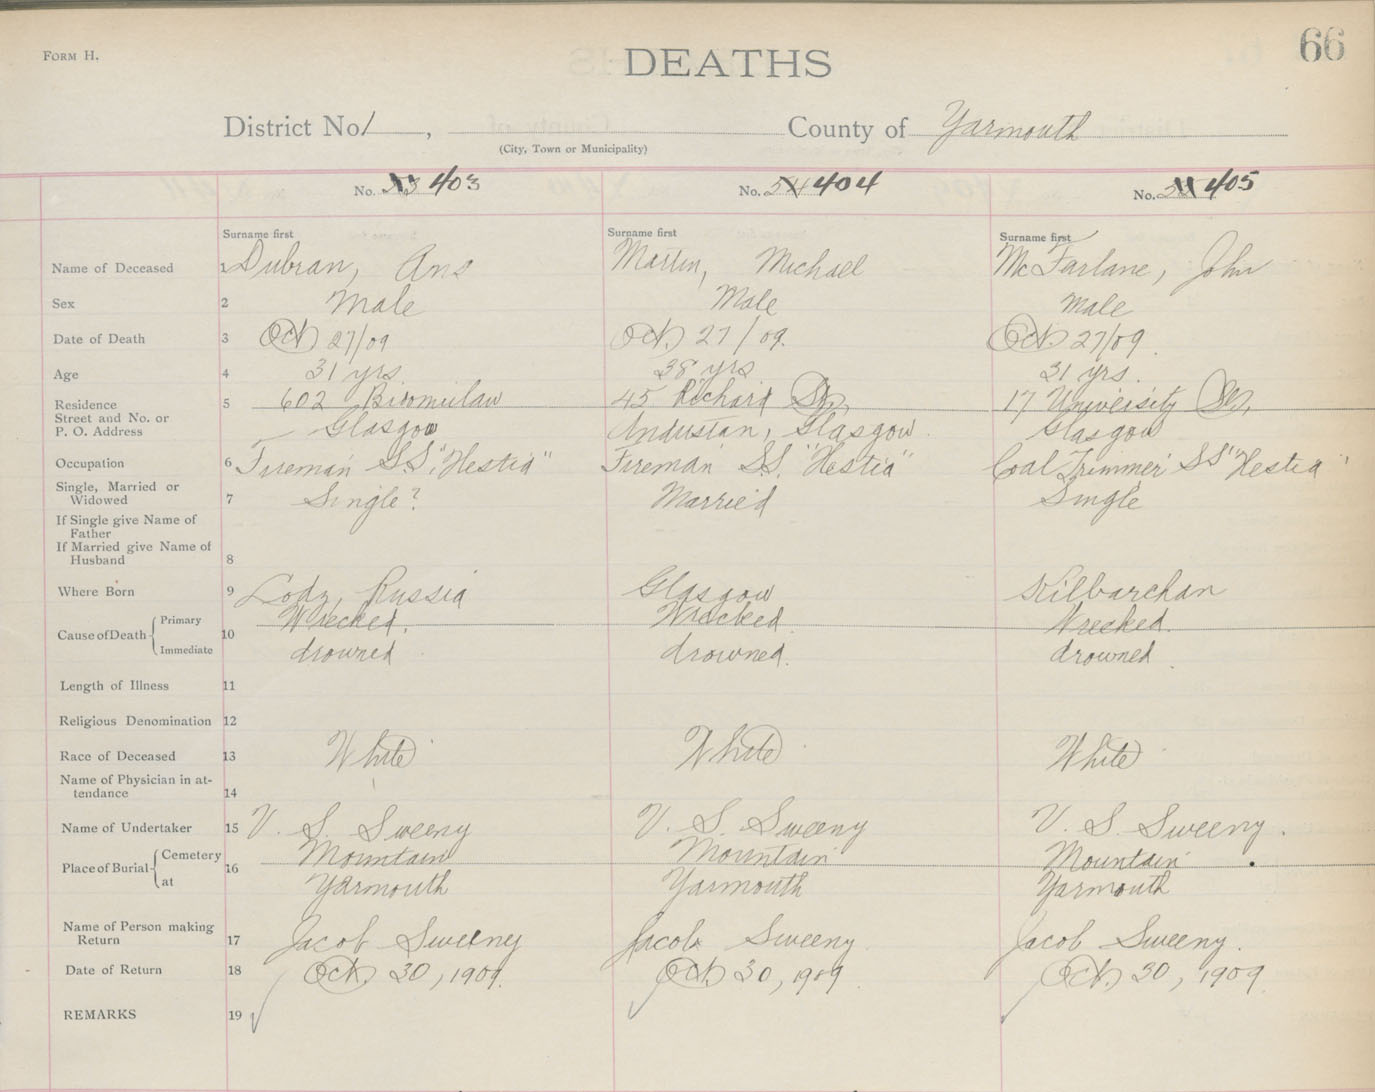 FORM H.
DEATHS
66
District No 1, County of Yarmouth
(City, Town or Municipality)
No. 403 No. 54 404 No. 405
Surname first Surname first Surname first
Name of Deceased 1 Dubran, Ans Martin, Michael McFarlane, John
Sex 2 Male Male Male
Date of Death 3 Oct. 27/09 Oct. 27/09. Oct. 27/09.
Age 4 31 yrs 38 yrs 31 yrs.
Residence 5 602 Broomielaw 45 Richard St., 17 University St.,
Street and No. or
P. O. Address Glasgow Andustan, Glasgow. Glasgow
Occupation 6 Fireman SS. "Hestia" Fireman SS. "Hestia" Coal Trimmer SS "Hestia"
Single, Married or
Widowed 7 Single? Married Single
If Single give Name of
Father
If Married give Name of
Husband 8
Where Born 9 Lodz, Russia Glasgow Kilbarchan
Cause of Death Primary 10 Wrecked. Wrecked. Wrecked.
Immediate drowned drowned. drowned.
Length of Illness 11
Religious Denomination 12
Race of Deceased 13 White White White
Name of Physician in at-
tendance 14
Name of Undertaker 15 V. S. Sweeny V. S. Sweeny V. S. Sweeny.
Place of Burial Cemetery 16 Mountain Mountain Mountain
at Yarmouth Yarmouth Yarmouth
Name of Person making
Return 17 Jacob Sweeney Jacob Sweeny. Jacob Sweeny.
Date of Return 18 Oct. 30, 1909. Oct. 30, 1909. Oct. 30, 1909.
REMARKS 19